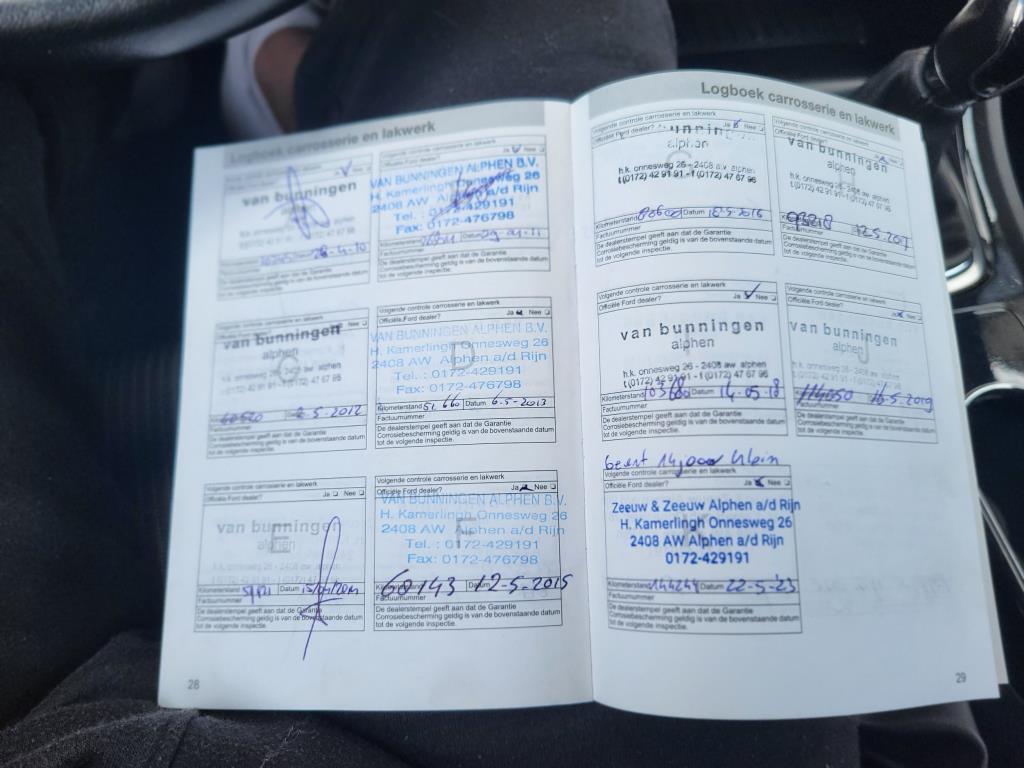 Logboek carrosserie en lakwerk
van bunningen
alphen
28-4-10
De dealerstempel geeft aan dat de Garantie
Corrosiebescherming geldig is van de bovenstaande datum
tot de volgende inspectie.
Ja Nee
VAN BUNNINGEN ALPHEN B.V.
H. Kamerlingh Onnesweg 26
2408 AW Alphen a/d Rijn
Tel. : 0172-429191
Fax: 0172-476798
Kilometerstand Datum
De dealerstempel geeft aan dat de Garantie
Corrosiebescherming geldig is van de bovenstaande datum
tot de volgende inspectie.
Volgende controle carrosserie en lakwerk
van bunningen
alphen
h.k. onnesweg 26 - 2408 aw alphen
t (0172) 42 91 91 - f (0172) 47 67 98
2-5-2012
Factuurnummer
De dealerstempel geeft aan dat de Garantie
Corrosiebescherming geldig is van de bovenstaande datum
tot de volgende inspectie.
Volgende controle carrosserie en lakwerk
Officiële Ford dealer? Ja Nee
VAN BUNNINGEN ALPHEN B.V.
H. Kamerlingh Onnesweg 26
2408 AW Alphen a/d Rijn
Tel. : 0172-429191
Fax: 0172-476798
Kilometerstand 51.660 Datum 6-5-2013
Factuurnummer
De dealerstempel geeft aan dat de Garantie
Corrosiebescherming geldig is van de bovenstaande datum
tot de volgende inspectie.
Volgende controle carrosserie en lakwerk
Officiële Ford dealer? Ja Nee
van bunningen
alphen
Kilometerstand Datum
Factuurnummer
De dealerstempel geeft aan dat de Garantie
Corrosiebescherming geldig is van de bovenstaande datum
tot de volgende inspectie.
Volgende controle carrosserie en lakwerk
Officiële Ford dealer? Ja Nee
VAN BUNNINGEN ALPHEN B.V.
H. Kamerlingh Onnesweg 26
2408 AW Alphen a/d Rijn
Tel. : 0172-429191
Fax: 0172-476798
68143 12-5-2015
Factuurnummer
De dealerstempel geeft aan dat de Garantie
Corrosiebescherming geldig is van de bovenstaande datum
tot de volgende inspectie.
28
Logboek carrosserie en lakwerk
Volgende controle carrosserie en lakwerk
Officiële Ford dealer? Ja Nee
alphen
h.k. onnesweg 26 - 2408 aw alphen
t (0172) 42 91 91 - f (0172) 47 67 98
Kilometerstand Datum
Factuurnummer
De dealerstempel geeft aan dat de Garantie
Corrosiebescherming geldig is van de bovenstaande datum
tot de volgende inspectie.
Volgende controle carrosserie en lakwerk
Officiële Ford dealer? Nee
van bunningen
alphen
h.k. onnesweg 26 - 2408 aw alphen
t (0172) 42 91 91 - f (0172) 47 67 98
12-5-2017
Factuurnummer
De dealerstempel geeft aan dat de Garantie
Corrosiebescherming geldig is van de bovenstaande datum
tot de volgende inspectie.
Volgende controle carrosserie en lakwerk
Officiële Ford dealer? Ja Nee
van bunningen
alphen
h.k. onnesweg 26 - 2408 aw alphen
t (0172) 42 91 91 - f (0172) 47 67 98
Kilometerstand Datum 14-05-18
Factuurnummer
De dealerstempel geeft aan dat de Garantie
Corrosiebescherming geldig is van de bovenstaande datum
tot de volgende inspectie.
Volgende controle carrosserie en lakwerk
Officiële Ford dealer? Ja Nee
van bunningen
alphen
h.k. onnesweg 26 - 2408 aw alphen
t (0172) 42 91 91 - f (0172) 47 67 98
114050 16-5-2019
Factuurnummer
De dealerstempel geeft aan dat de Garantie
Corrosiebescherming geldig is van de bovenstaande datum
tot de volgende inspectie.
Volgende controle carrosserie en lakwerk
Officiële Ford dealer? Ja Nee
Zeeuw & Zeeuw Alphen a/d Rijn
H. Kamerlingh Onnesweg 26
2408 AW Alphen a/d Rijn
0172-429191
Kilometerstand 144244 Datum 22-5-23
Factuurnummer
De dealerstempel geeft aan dat de Garantie
Corrosiebescherming geldig is van de bovenstaande datum
tot de volgende inspectie.
29